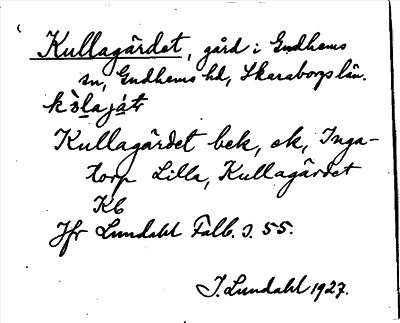 Kullagärdet, gård i Gudhems
sn, Gudhems hd, Skaraborgs län.
Kullagärdet bek, ek, Inga-
torp Lilla, Kullagärdet
Kb
Jfr Lundahl Falb. s. 55.
I. Lundahl 1927.